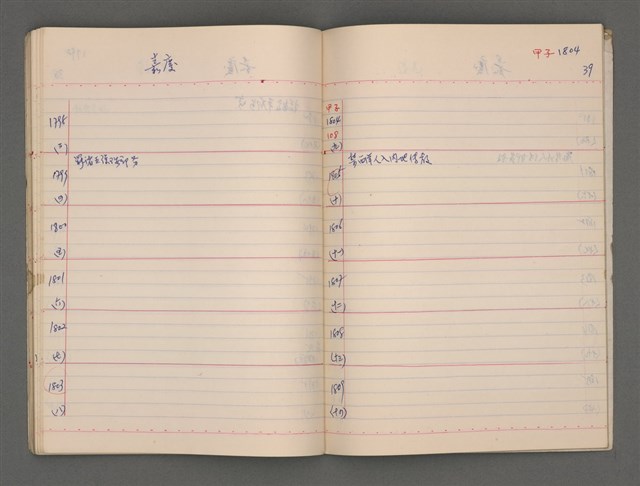 嘉慶
1798
(三)
1799
(四)
1800
(五)
1801
(六)
1802
(七)
1803
(八)
甲子 1804
39
甲子
1804
(九)
1805
(十)
禁西洋人入内地傳教
1806
(十一)
1807
(十二)
1808
(十三)
1809
(十四)